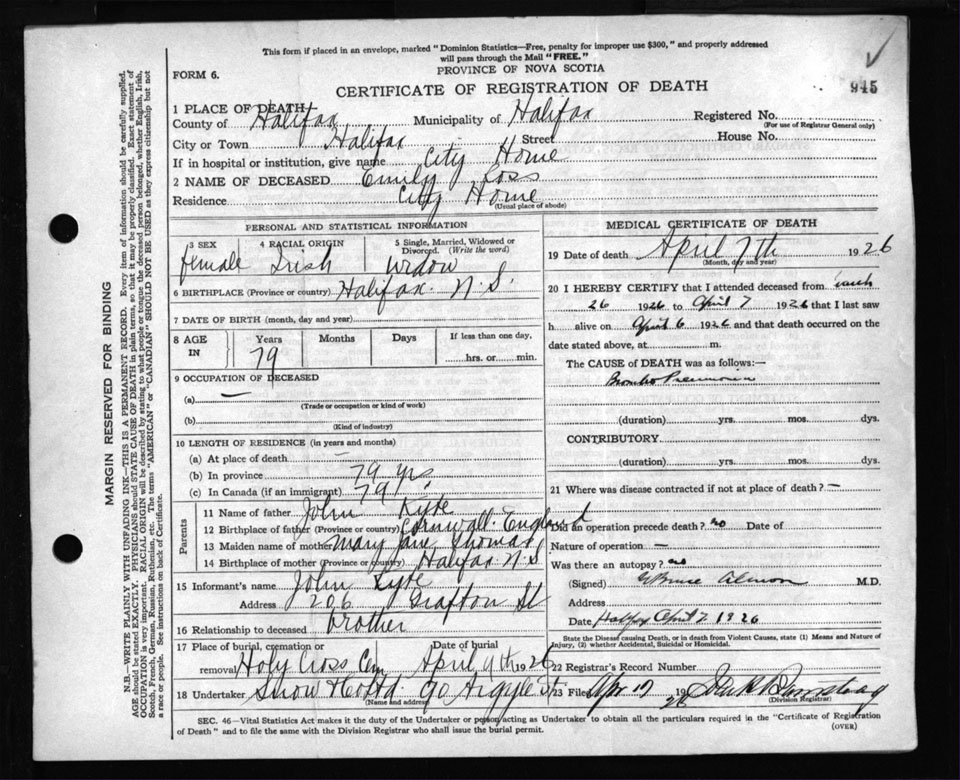 This form if placed in an envelope, marked "Dominion Statistics—Free, penalty for improper use $300," and properly addressed
will pass through the Mail "FREE."
PROVINCE OF NOVA SCOTIA
FORM 6.
CERTIFICATE OF REGISTRATION OF DEATH
945
1 PLACE OF DEATH
County of Halifax Municipality of Halifax Registered No.
(For use of Registrar General only)
City or Town Halifax Street House No.
If in hospital or institution, give name City Home
2 NAME OF DECEASED Emily Ross
Residence City Home
(Usual place of abode)
PERSONAL AND STATISTICAL INFORMATION
3 SEX 4 RACIAL ORIGIN 5 Single, Married, Widowed or
Divorced. (Write the word)
female Irish widow
6 BIRTHPLACE (Province or country) Halifax N.S.
7 DATE OF BIRTH (month, day and year)
8 AGE IN Years Months Days If less than one day,
79 hrs. or min.
9 OCCUPATION OF DECEASED
(a) —
(Trade or occupation or kind of work)
(b)
(Kind of industry)
10 LENGTH OF RESIDENCE (in years and months)
(a) At place of death —
(b) In province 79 yrs
(c) In Canada (if an immigrant) 79
Parents
11 Name of father John Kyte
12 Birthplace of father (Province or country) Cornwall England
13 Maiden name of mother Mary Jane Thomas
14 Birthplace of mother (Province or country) Halifax N.S
15 Informant's name John Kyte
Address 206 Grafton St
16 Relationship to deceased brother
17 Place of burial, cremation or Date of burial
removal Holy Cross Cem April 9th 1926
18 Undertaker Snow & Co Ltd. 90 Argyle St
(Name and address)
MEDICAL CERTIFICATE OF DEATH
19 Date of death April 7th 1926
(Month, day and year)
20 I HEREBY CERTIFY that I attended deceased from March
26 1926 to April 7 1926 that I last saw
h alive on April 6 1926 and that death occurred on the
date stated above, at m.
The CAUSE OF DEATH was as follows:—
Broncho Pneumonia
(duration) yrs. mos. dys.
CONTRIBUTORY
(duration) yrs. mos. dys.
21 Where was disease contracted if not at place of death? —
Did an operation precede death? no Date of
Nature of operation —
Was there an autopsy? no
(Signed) Bruce Almon M.D.
Address
Date Halifax April 7 1926
State the Disease causing Death, or in death from Violent Causes, state (1) Means and Nature of
Injury, (2) whether Accidental, Suicidal or Homicidal.
22 Registrar's Record Number
23 Filed Apr 17 1926
(Division Registrar)
SEC. 46—Vital Statistics Act makes it the duty of the Undertaker or person acting as Undertaker to obtain all the particulars required in the "Certificate of Registration
of Death" and to file the same with the Division Registrar who shall issue the burial permit.
(OVER)
MARGIN RESERVED FOR BINDING
N.B.—WRITE PLAINLY WITH UNFADING INK—THIS IS A PERMANENT RECORD. Every item of information should be carefully supplied.
AGE should be stated EXACTLY. PHYSICIANS should STATE CAUSE OF DEATH in plain terms, so that it may be properly classified. Exact statement of
OCCUPATION is very important. RACIAL ORIGIN will be described by stating to what people or tongue the deceased person belonged, whether English, Irish,
Scotch, French, German, Russian, Ruthenian, etc. The terms "AMERICAN" or "CANADIAN" SHOULD NOT BE USED as they express citizenship but not
a race or people. See instructions on back of Certificate.